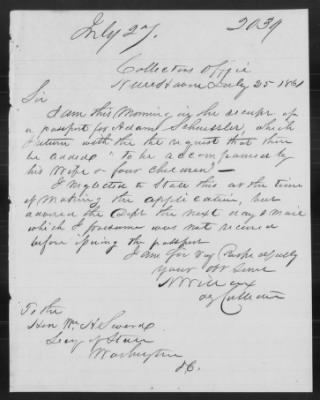 July 27. 2039
Collectors Office
New Haven July 25 1861
Sir
I am this Morning in the receipt of
a passport for Adam Schuessler, which
I return with the request that there
be added "to be accompanied by
his Wife & four children" —
I neglected to State this at the time
of Making the application, but
the Dept the next day's Mail
which I presume was not received
before the passport
I am Sir Very Respectfully
Your Obt Servt
To the
Hon Wm H Seward
Secy of State
Washington
DC.